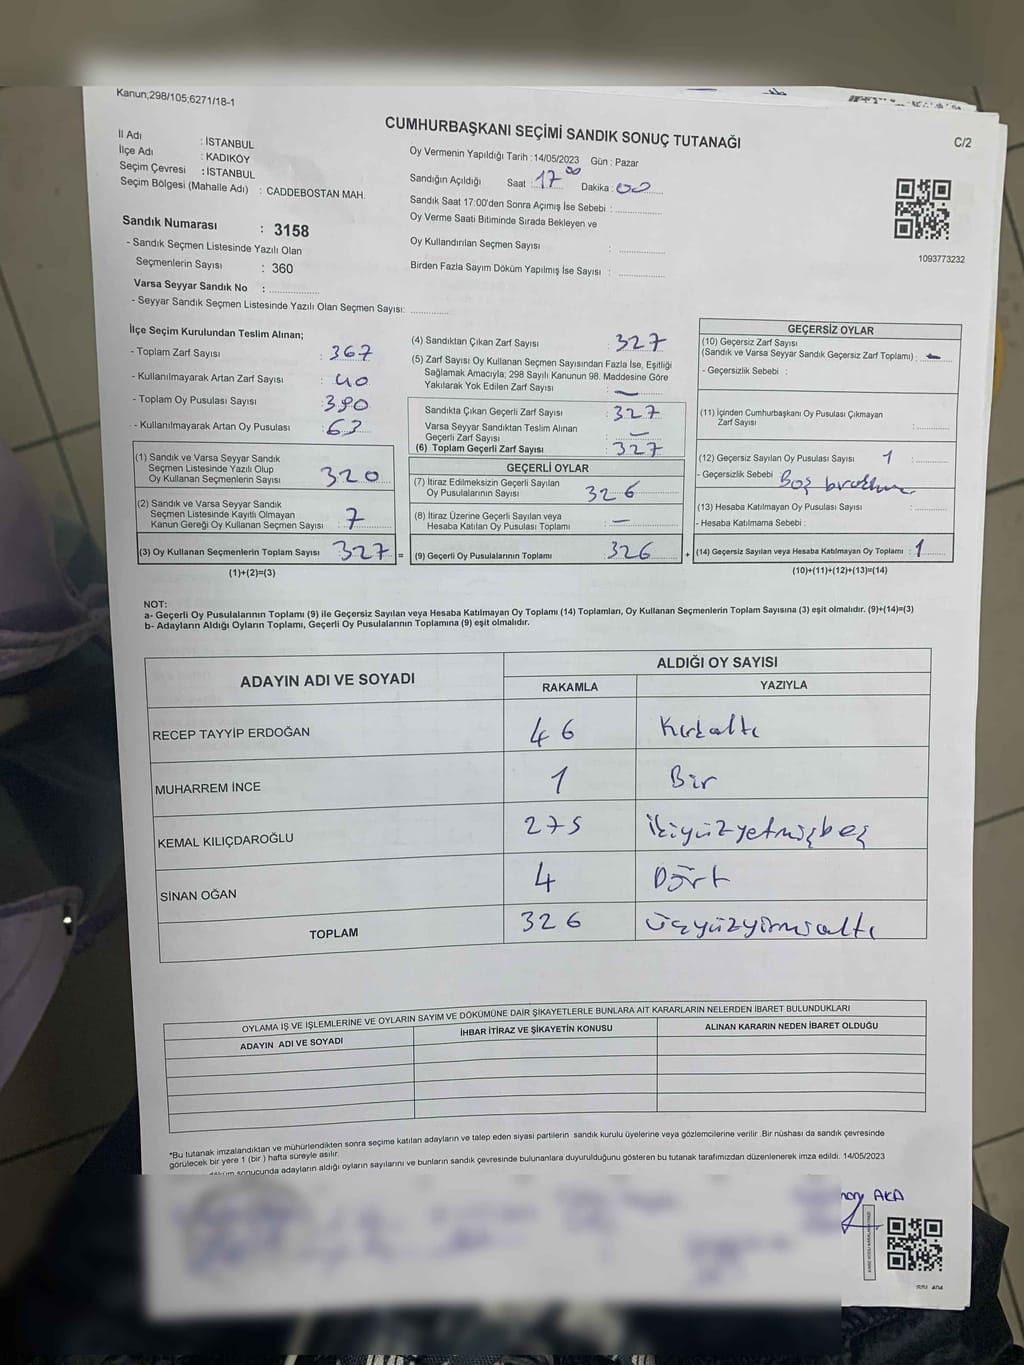 Kanun;298/105;6271/18-1
CUMHURBAŞKANI SEÇİMİ SANDIK SONUÇ TUTANAĞI
C/2
İl Adı : İSTANBUL
İlçe Adı : KADIKÖY
Seçim Çevresi : İSTANBUL
Seçim Bölgesi (Mahalle Adı) : CADDEBOSTAN MAH.
Sandık Numarası : 3158
- Sandık Seçmen Listesinde Yazılı Olan
Seçmenlerin Sayısı : 360
Varsa Seyyar Sandık No : ...............
- Seyyar Sandık Seçmen Listesinde Yazılı Olan Seçmen Sayısı: ............
Oy Vermenin Yapıldığı Tarih : 14/05/2023 Gün : Pazar
Sandığın Açıldığı Saat : 17 00 Dakika : 00
Sandık Saat 17:00'den Sonra Açımış İse Sebebi : ...............
Oy Verme Saati Bitiminde Sırada Bekleyen ve
Oy Kullandırılan Seçmen Sayısı : ...............
Birden Fazla Sayım Döküm Yapılmış İse Sayısı : ...............
1093773232
İlçe Seçim Kurulundan Teslim Alınan;
- Toplam Zarf Sayısı : 367
- Kullanılmayarak Artan Zarf Sayısı : 40
- Toplam Oy Pusulası Sayısı : 390
- Kullanılmayarak Artan Oy Pusulası : 63
(1) Sandık ve Varsa Seyyar Sandık
Seçmen Listesinde Yazılı Olup
Oy Kullanan Seçmenlerin Sayısı : 320
(2) Sandık ve Varsa Seyyar Sandık
Seçmen Listesinde Kayıtlı Olmayan
Kanun Gereği Oy Kullanan Seçmen Sayısı : 7
(3) Oy Kullanan Seçmenlerin Toplam Sayısı : 327 =
(1)+(2)=(3)
(4) Sandıktan Çıkan Zarf Sayısı : 327
(5) Zarf Sayısı Oy Kullanan Seçmen Sayısından Fazla İse, Eşitliği
Sağlamak Amacıyla; 298 Sayılı Kanunun 98. Maddesine Göre
Yakılarak Yok Edilen Zarf Sayısı : —
Sandıkta Çıkan Geçerli Zarf Sayısı : 327
Varsa Seyyar Sandıktan Teslim Alınan
Geçerli Zarf Sayısı : —
(6) Toplam Geçerli Zarf Sayısı : 327
GEÇERLİ OYLAR
(7) İtiraz Edilmeksizin Geçerli Sayılan
Oy Pusulalarının Sayısı : 326
(8) İtiraz Üzerine Geçerli Sayılan veya
Hesaba Katılan Oy Pusulası Toplamı : —
(9) Geçerli Oy Pusulalarının Toplamı : 326 +
GEÇERSİZ OYLAR
(10) Geçersiz Zarf Sayısı
(Sandık ve Varsa Seyyar Sandık Geçersiz Zarf Toplamı) : —
- Geçersizlik Sebebi :
(11) İçinden Cumhurbaşkanı Oy Pusulası Çıkmayan
Zarf Sayısı : ............
(12) Geçersiz Sayılan Oy Pusulası Sayısı : 1
- Geçersizlik Sebebi Boş
(13) Hesaba Katılmayan Oy Pusulası Sayısı : ............
- Hesaba Katılmama Sebebi :
(14) Geçersiz Sayılan veya Hesaba Katılmayan Oy Toplamı : 1
(10)+(11)+(12)+(13)=(14)
NOT:
a- Geçerli Oy Pusulalarının Toplamı (9) ile Geçersiz Sayılan veya Hesaba Katılmayan Oy Toplamı (14) Toplamları, Oy Kullanan Seçmenlerin Toplam Sayısına (3) eşit olmalıdır. (9)+(14)=(3)
b- Adayların Aldığı Oyların Toplamı, Geçerli Oy Pusulalarının Toplamına (9) eşit olmalıdır.
ADAYIN ADI VE SOYADI ALDIĞI OY SAYISI
RAKAMLA YAZIYLA
RECEP TAYYİP ERDOĞAN 46 Kırkaltı
MUHARREM İNCE 1 Bir
KEMAL KILIÇDAROĞLU 275 İkiyüzyetmişbeş
SİNAN OĞAN 4 Dört
TOPLAM 326 üçyüzyirmialtı
OYLAMA İŞ VE İŞLEMLERİNE VE OYLARIN SAYIM VE DÖKÜMÜNE DAİR ŞİKAYETLERLE BUNLARA AİT KARARLARIN NELERDEN İBARET BULUNDUKLARI
ADAYIN ADI VE SOYADI İHBAR İTİRAZ VE ŞİKAYETİN KONUSU ALINAN KARARIN NEDEN İBARET OLDUĞU
*Bu tutanak imzalandıktan ve mühürlendikten sonra seçime katılan adayların ve talep eden siyasi partilerin sandık kurulu üyelerine veya gözlemcilerine verilir .Bir nüshası da sandık çevresinde
görülecek bir yere 1 (bir ) hafta süreyle asılır.
sonucunda adayların aldığı oyların sayılarını ve bunların sandık çevresinde bulunanlara duyurulduğunu gösteren bu tutanak tarafımızdan düzenlenerek imza edildi. 14/05/2023
AKA